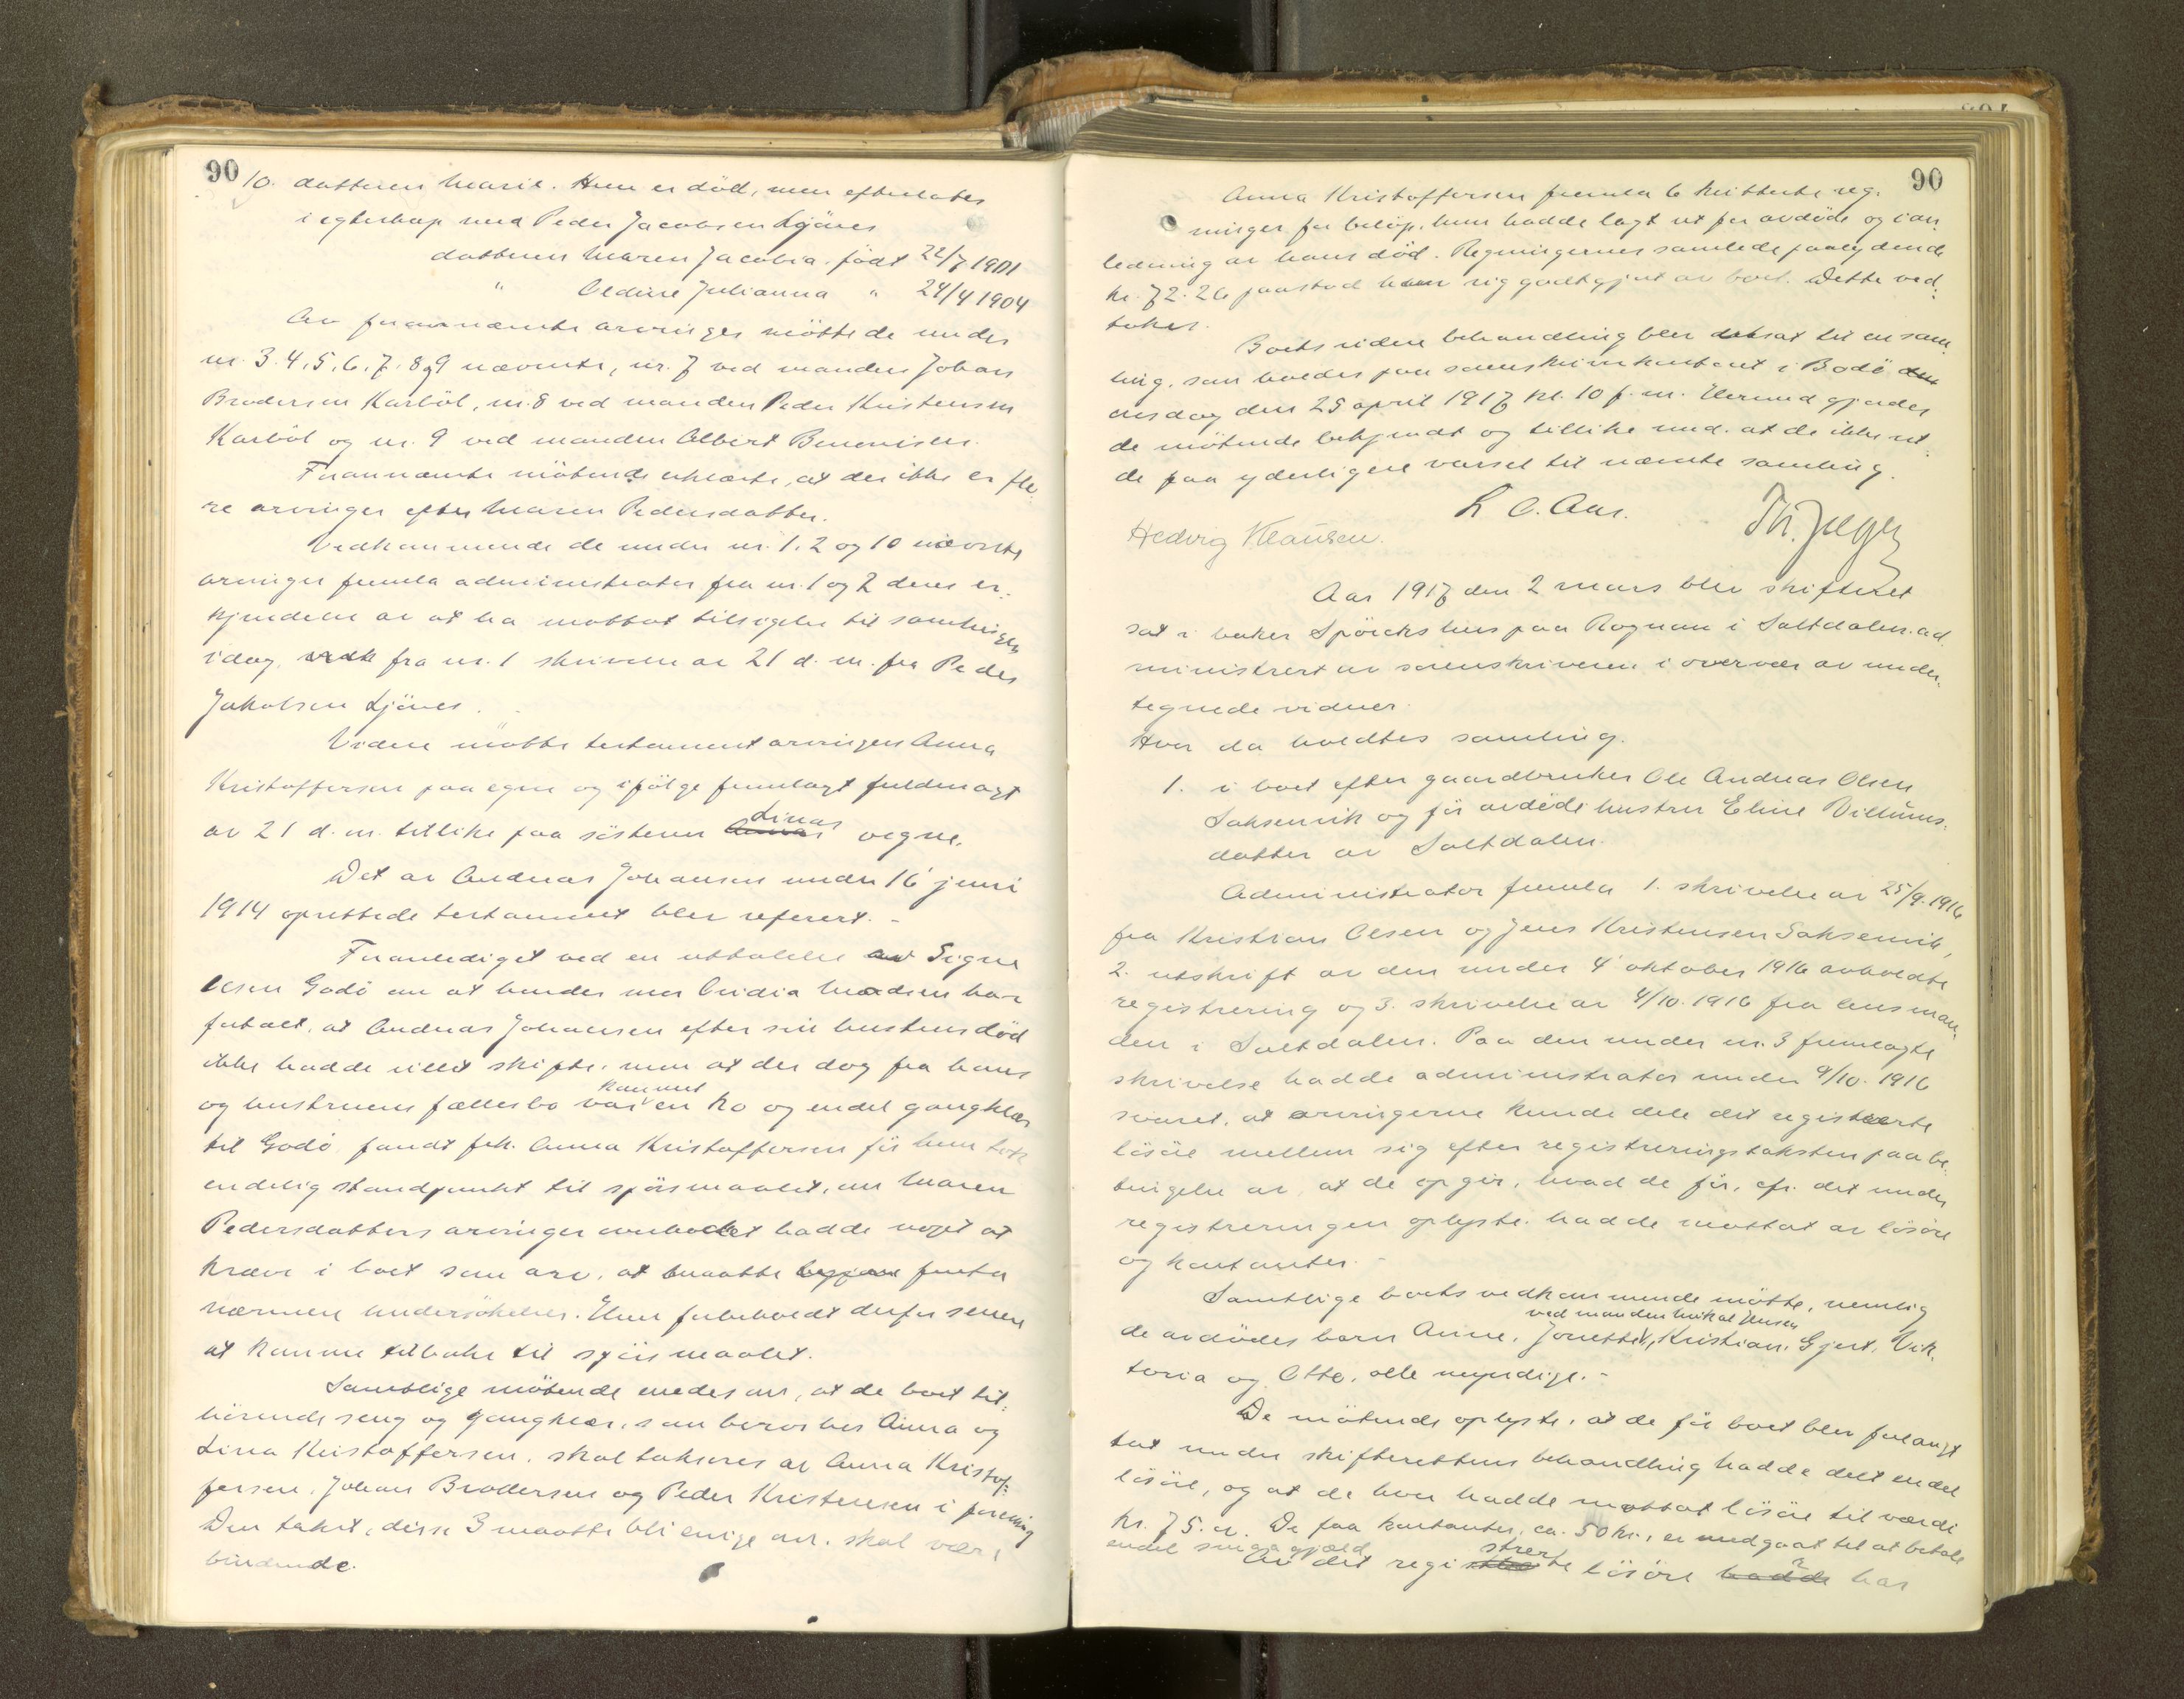 90
10. datteren Marie. Hun er död, men efterlates
i egteskap med Peder Jacobsen Ljönes
datteren Maren Jacobia født 22/7 1901
" Oldine Julianna " 24/4 1904
Av forannævnte arvinger mötte de under
nr. 3. 4, 5, 6, 7, 8 og 9 nævnte, nr. 7 ved manden Johan
Brodersen Karböl, nr. 8 ved manden Peder Kristensen
Karböl og nr. 9 ved manden Albert Benonisen.
Forannævnte mötende erklærte, at der ikke er fle-
re arvinger efter Maren Pedersdatter.
Vedkommende de under nr. 1, 2 og 10 nævnte
arvinger fremla administrator fra nr. 1 og 2 deres er-
kjendelse av at ha mottat tilsigelse til samlingen
idag, samt fra nr. 1 skrivelse av 21 d. m. fra Peder
Jakobsen Ljönes.
Videre mötte testamentarvingen Anna
Kristoffersen paa egne og ifölge fremlagt fuldmagt
av 21 d. m. tillike paa sösteren Linas vegne.
Det av Andreas Johansen under 16' juni
1914 oprettede testament blev referert. -
Foranlediget ved en uttalelse av Signe
Olsen Godö om at hendes mor Ovidia Madsen har
fortalt, at Andreas Johansen efter sin hustrus död
ikke hadde villet skifte, men at der dog fra hans
og hustruens fællesbo var kommet en ko og endel gangklær
til Godö, fandt frk. Anna Kristoffersen för hun tok
endelig standpunkt til spörsmaalet, om Maren
Pedersdatters arvinger overhodet hadde noget at
kræve i boet som arv, at maatte foreta
nærmere undersökelser. Hun forbeholdt derfor senere
at komme tilbake til spörsmaalet.
Samtlige mötende enedes om, at de boet til-
hörende seng og gangklær, som beror hos Anna og
Lina Kristoffersen, skal takseres av Anna Kristof-
fersen, Johan Brodersen og Peder Kristensen i forening
Den takst, disse 3 maatte bli enige om, skal være
bindende.
90
Anna Kristoffersen fremla 6 kvitterte reg-
ninger for belöp, hun hadde lagt ut for avdöde og i an-
ledning av hans död. Regningernes samlede paalydende
kr. 72.26 paastod hun sig godtgjort av boet. Dette ved-
tokes.
Boets videre behandling blev utsat til en sam-
ling, som holdes paa sorenskriverkontoret i Bodö
onsdag den 25 april 1917 kl. 10 f. m. Herved gjordes
de mötende bekjendt og tillike med, at de ikke vil
de faa yderligere varsel til nævnte samling.
L. O. Aar. Th. Jæger
Hedvig Klausen.
Aar 1917 den 2 mars blev skifteret
sat i baker Spörcks hus paa Rognan i Saltdalen ad-
ministrert av sorenskriveren i overvær av under-
tegnede vidner.
Hvor da holdtes samling.
1. i boet efter gaardbruker Ole Andreas Olsen
Saksenvik og för avdöde hustru Eline Villums-
datter av Saltdalen.
Administrator fremla 1. skrivelse av 25/9. 1916
fra Kristian Olsen og Jens Kristensen Saksenvik,
2. utskrift av den under 4' oktober 1916 avholdte
registrering og 3. skrivelse av 4/10. 1916 fra lensman-
den i Saltdalen. Paa den under nr. 3 fremlagte
skrivelse hadde administrator under 9/10. 1916
svaret, at arvingerne kunde dele det registrerte
lösöre mellem sig efter registreringstaksten paa be-
tingelse av, at de opgir, hvad de för, cfr. det under
registreringen oplyste, hadde mottat av lösöre
og kontanter. -
Samtlige boets vedkommende mötte, nemlig
de avdödes barn Anne, Jonette ved manden Mikal Jensen, Kristian, Gjert, Vik-
toria og Otto, alle myndige. -
De mötende oplyste, at de för boet blev forlangt
tat under skifterettens behandling hadde delt endel
lösöre, og at de hver hadde mottat lösöre til værdi
kr. 75.00. De faa kontanter, ca. 50 kr., er medgaat til at betale
endel smaa gjæld.
Av det registrerte lösöre har